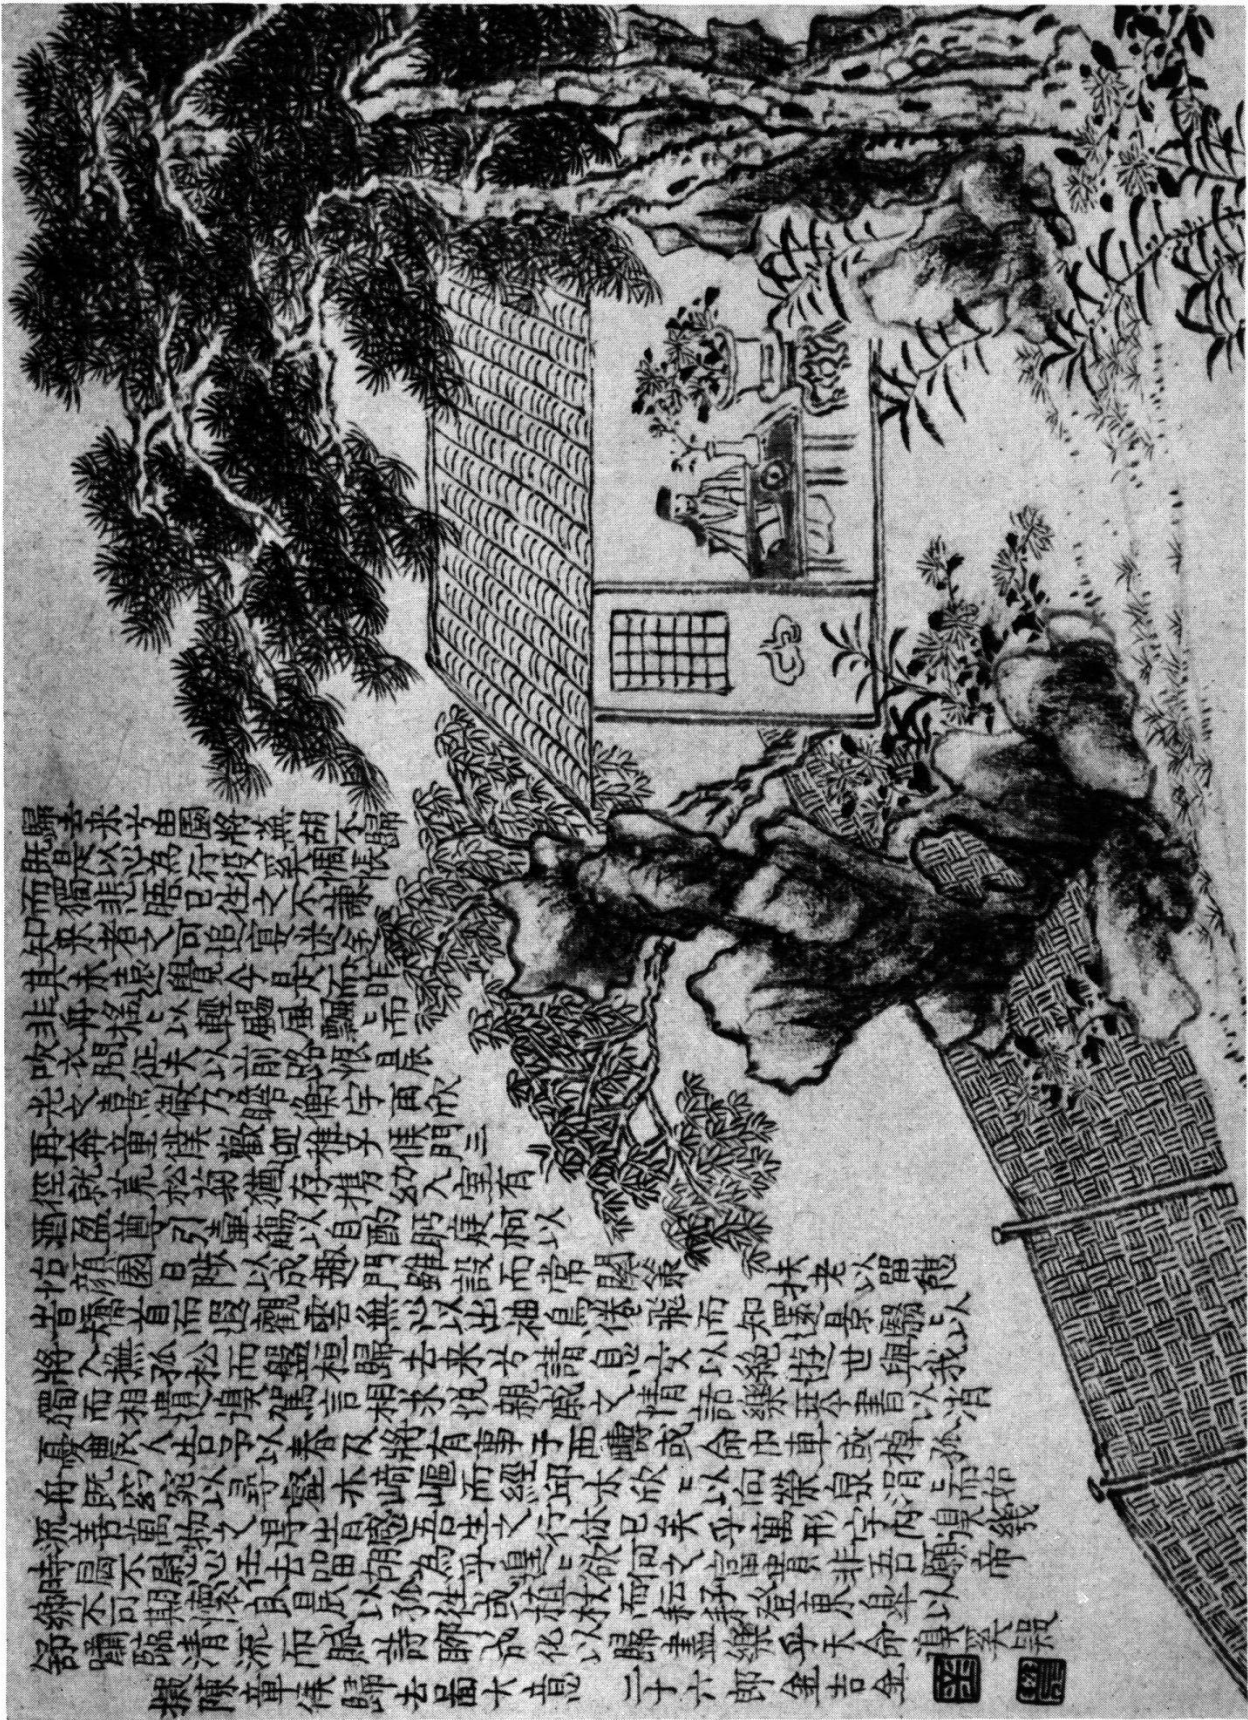 歸去来兮田園將蕪胡不歸
既自以心為行役奚惆悵
而獨悲悟已往之不諫
知来者之可追寔迷余
其未遠覺今是而昨
非舟搖〻以輕颺風飄〻而
吹衣問征夫以前路恨晨
光之熹微乃瞻衡宇再欣
再奔童僕歡迎稚子候門三
徑就荒松菊猶存攜幼入室有
酒盈尊引壷觴以自酌眄庭柯以
怡顏園日陟以成趣門雖設而常關策扶老以留憩
昔矯首而遐觀雲無以出岫鳥倦飛而知還景翳〻以
將入撫孤松而盤桓歸去来兮請息交以絕遊世與我以
獨而相遺復駕言相求悅親戚文情話樂琴書以消
憂農人告予以春及將有事于西疇或命巾車或棹孤
舟既窈窕以尋壑亦崎嶇而經邱木欣〻以向榮泉涓〻而始
流善萬物之得時感吾生之行休已矣乎寓形宇内復幾
時曷不委心任去留胡為乎遑〻欲何之富貴非吾願帝
鄉不可期懷良晨以孤往或植杖而耘耔登東皋以
舒嘯臨清流而賦詩聊乘化以歸盡樂乎天命復奚疑
擬陳章侯歸去圖大意 二十六郎金吉金